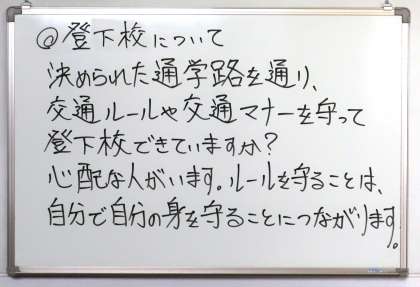 ◎登下校について
決められた通学路を通り、
交通ルールや交通マナーを守って
登下校できていますか?
心配な人がいます。ルールを守ることは、
自分で自分の身を守ることにつながります。